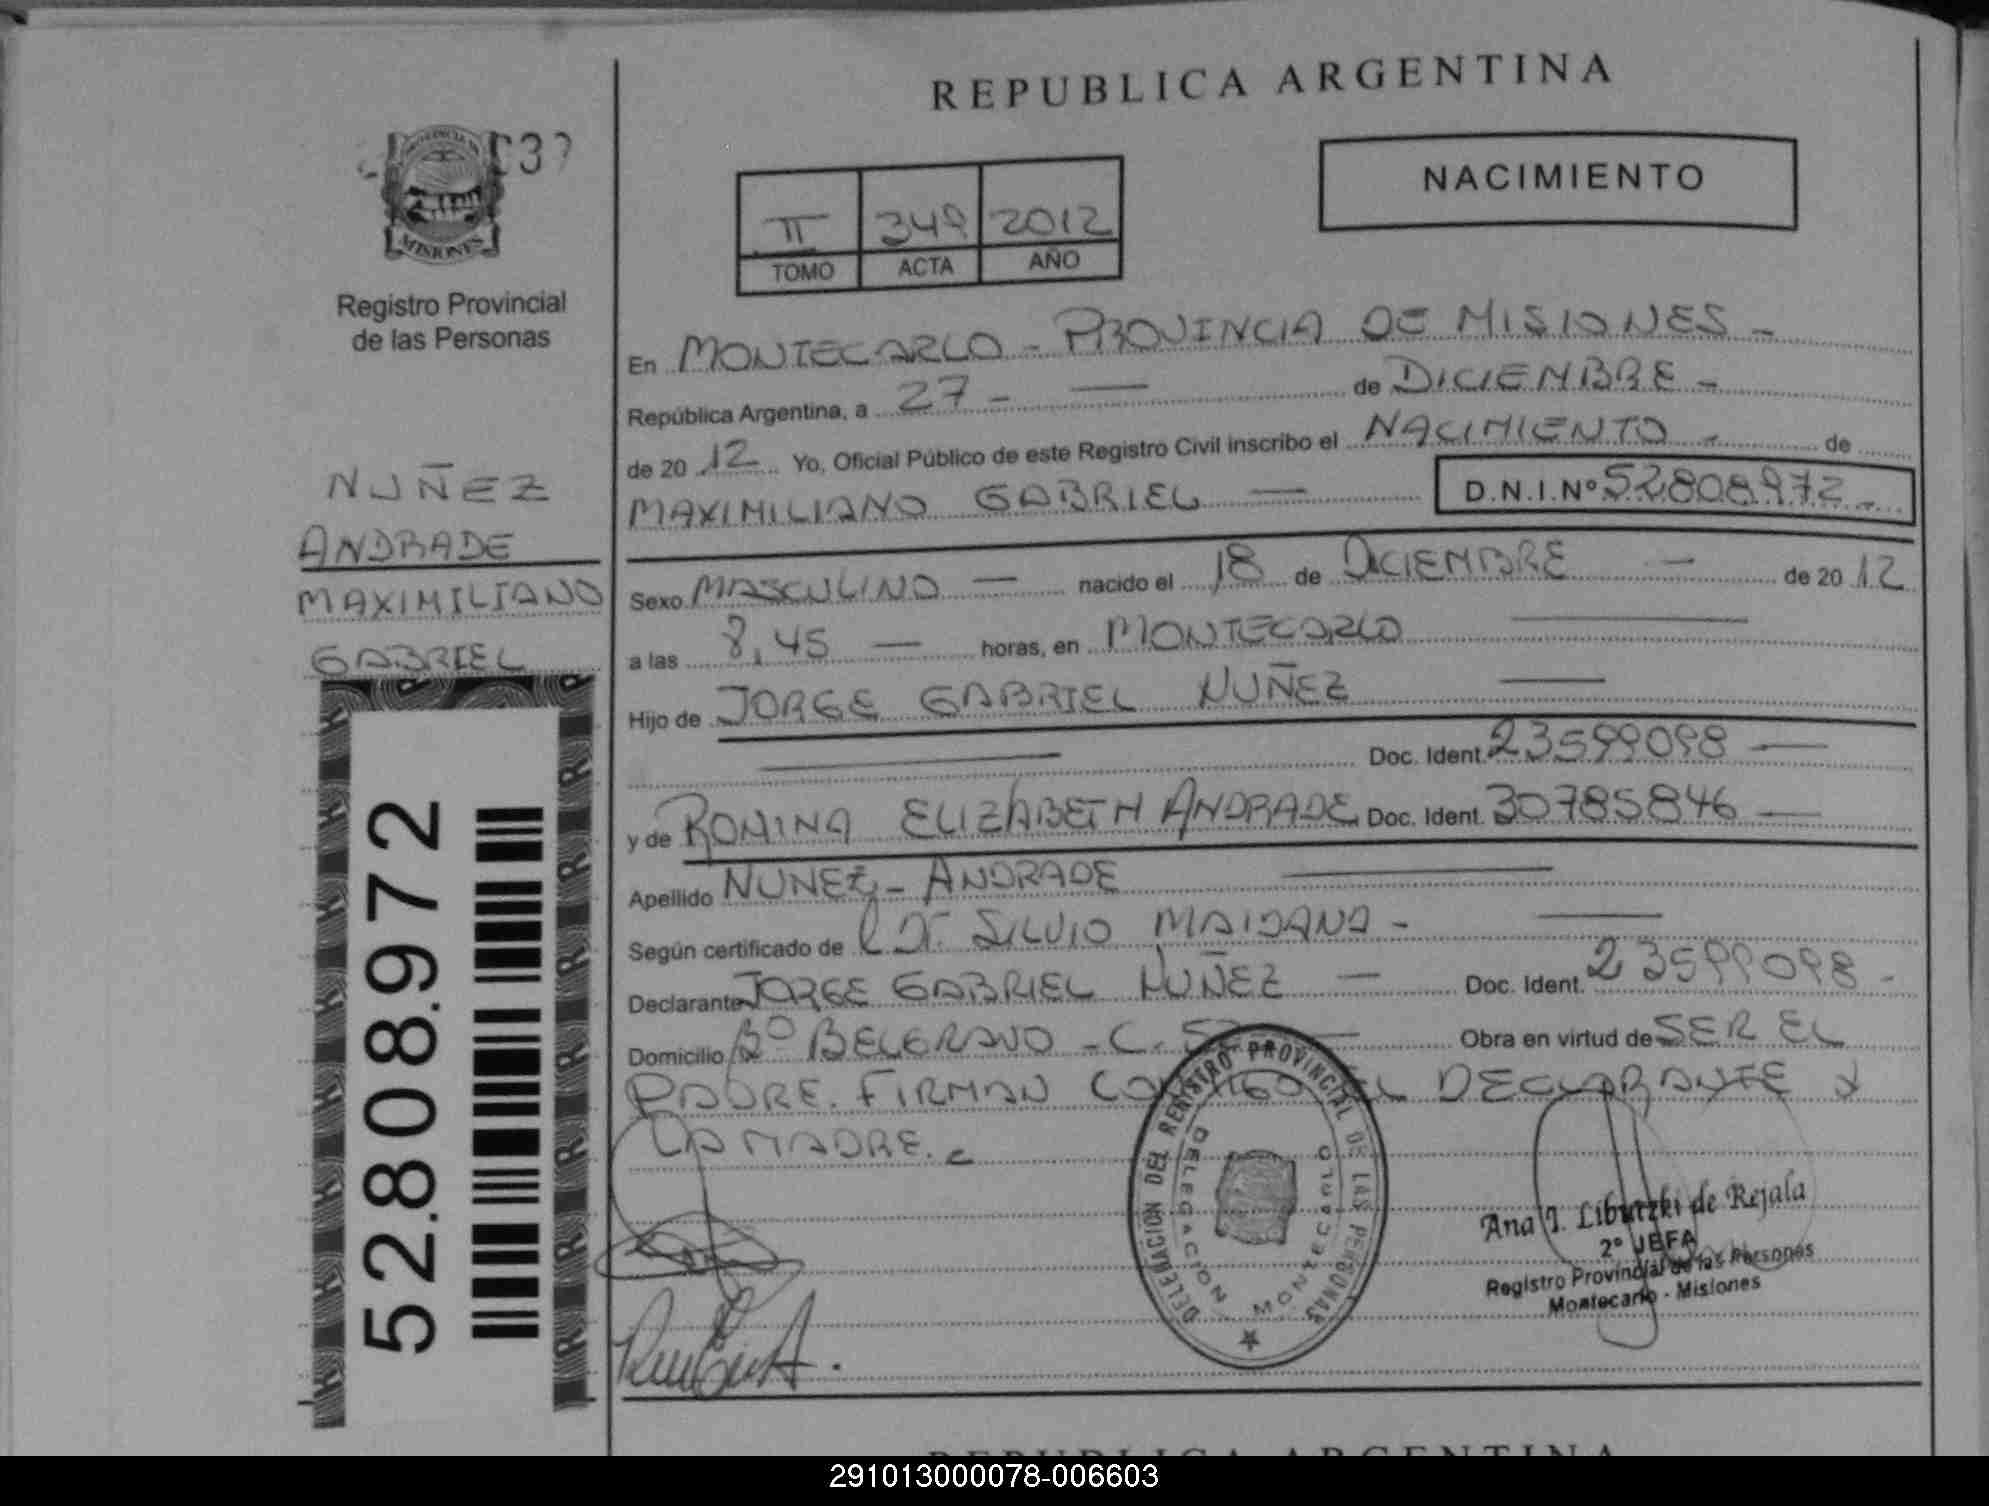 REPUBLICA ARGENTINA
NACIMIENTO
PROVINCIA DE
MISIONES
Registro Provincial
de las Personas
II 349 2012
TOMO ACTA AÑO
En MONTECARLO - PROVINCIA DE MISIONES -
República Argentina, a 27 - — de DICIEMBRE -
de 20 12 Yo, Oficial Público de este Registro Civil inscribo el NACIMIENTO - de
MAXIMILIANO GABRIEL — D.N.I.Nº 52808972 -
NUÑEZ
ANDRADE
MAXIMILIANO
GABRIEL
Sexo MASCULINO — nacido el 18 de DICIEMBRE — de 20 12
a las 8,45 — horas, en MONTECARLO —
Hijo de JORGE GABRIEL NUÑEZ —
— Doc. Ident. 23599098 —
y de ROMINA ELIZABETH ANDRADE Doc. Ident. 30785846 —
Apellido NUÑEZ - ANDRADE —
Según certificado de Dr. SILVIO MAIDANA - —
Declarante JORGE GABRIEL NUÑEZ — Doc. Ident. 23599098 -
Domicilio Bº BELGRANO - C. — Obra en virtud de SER EL
PADRE. FIRMAN CONMIGO EL DECLARANTE Y
LA MADRE.
52.808.972
DELEGACION DEL REGISTRO PROVINCIAL DE LAS PERSONAS
DELEGACION MONTECARLO
Ana I. Libutzki de Rejala
2º JEFA
Registro Provincial de las Personas
Montecarlo - Misiones
REPUBLICA ARGENTINA
291013000078-006603